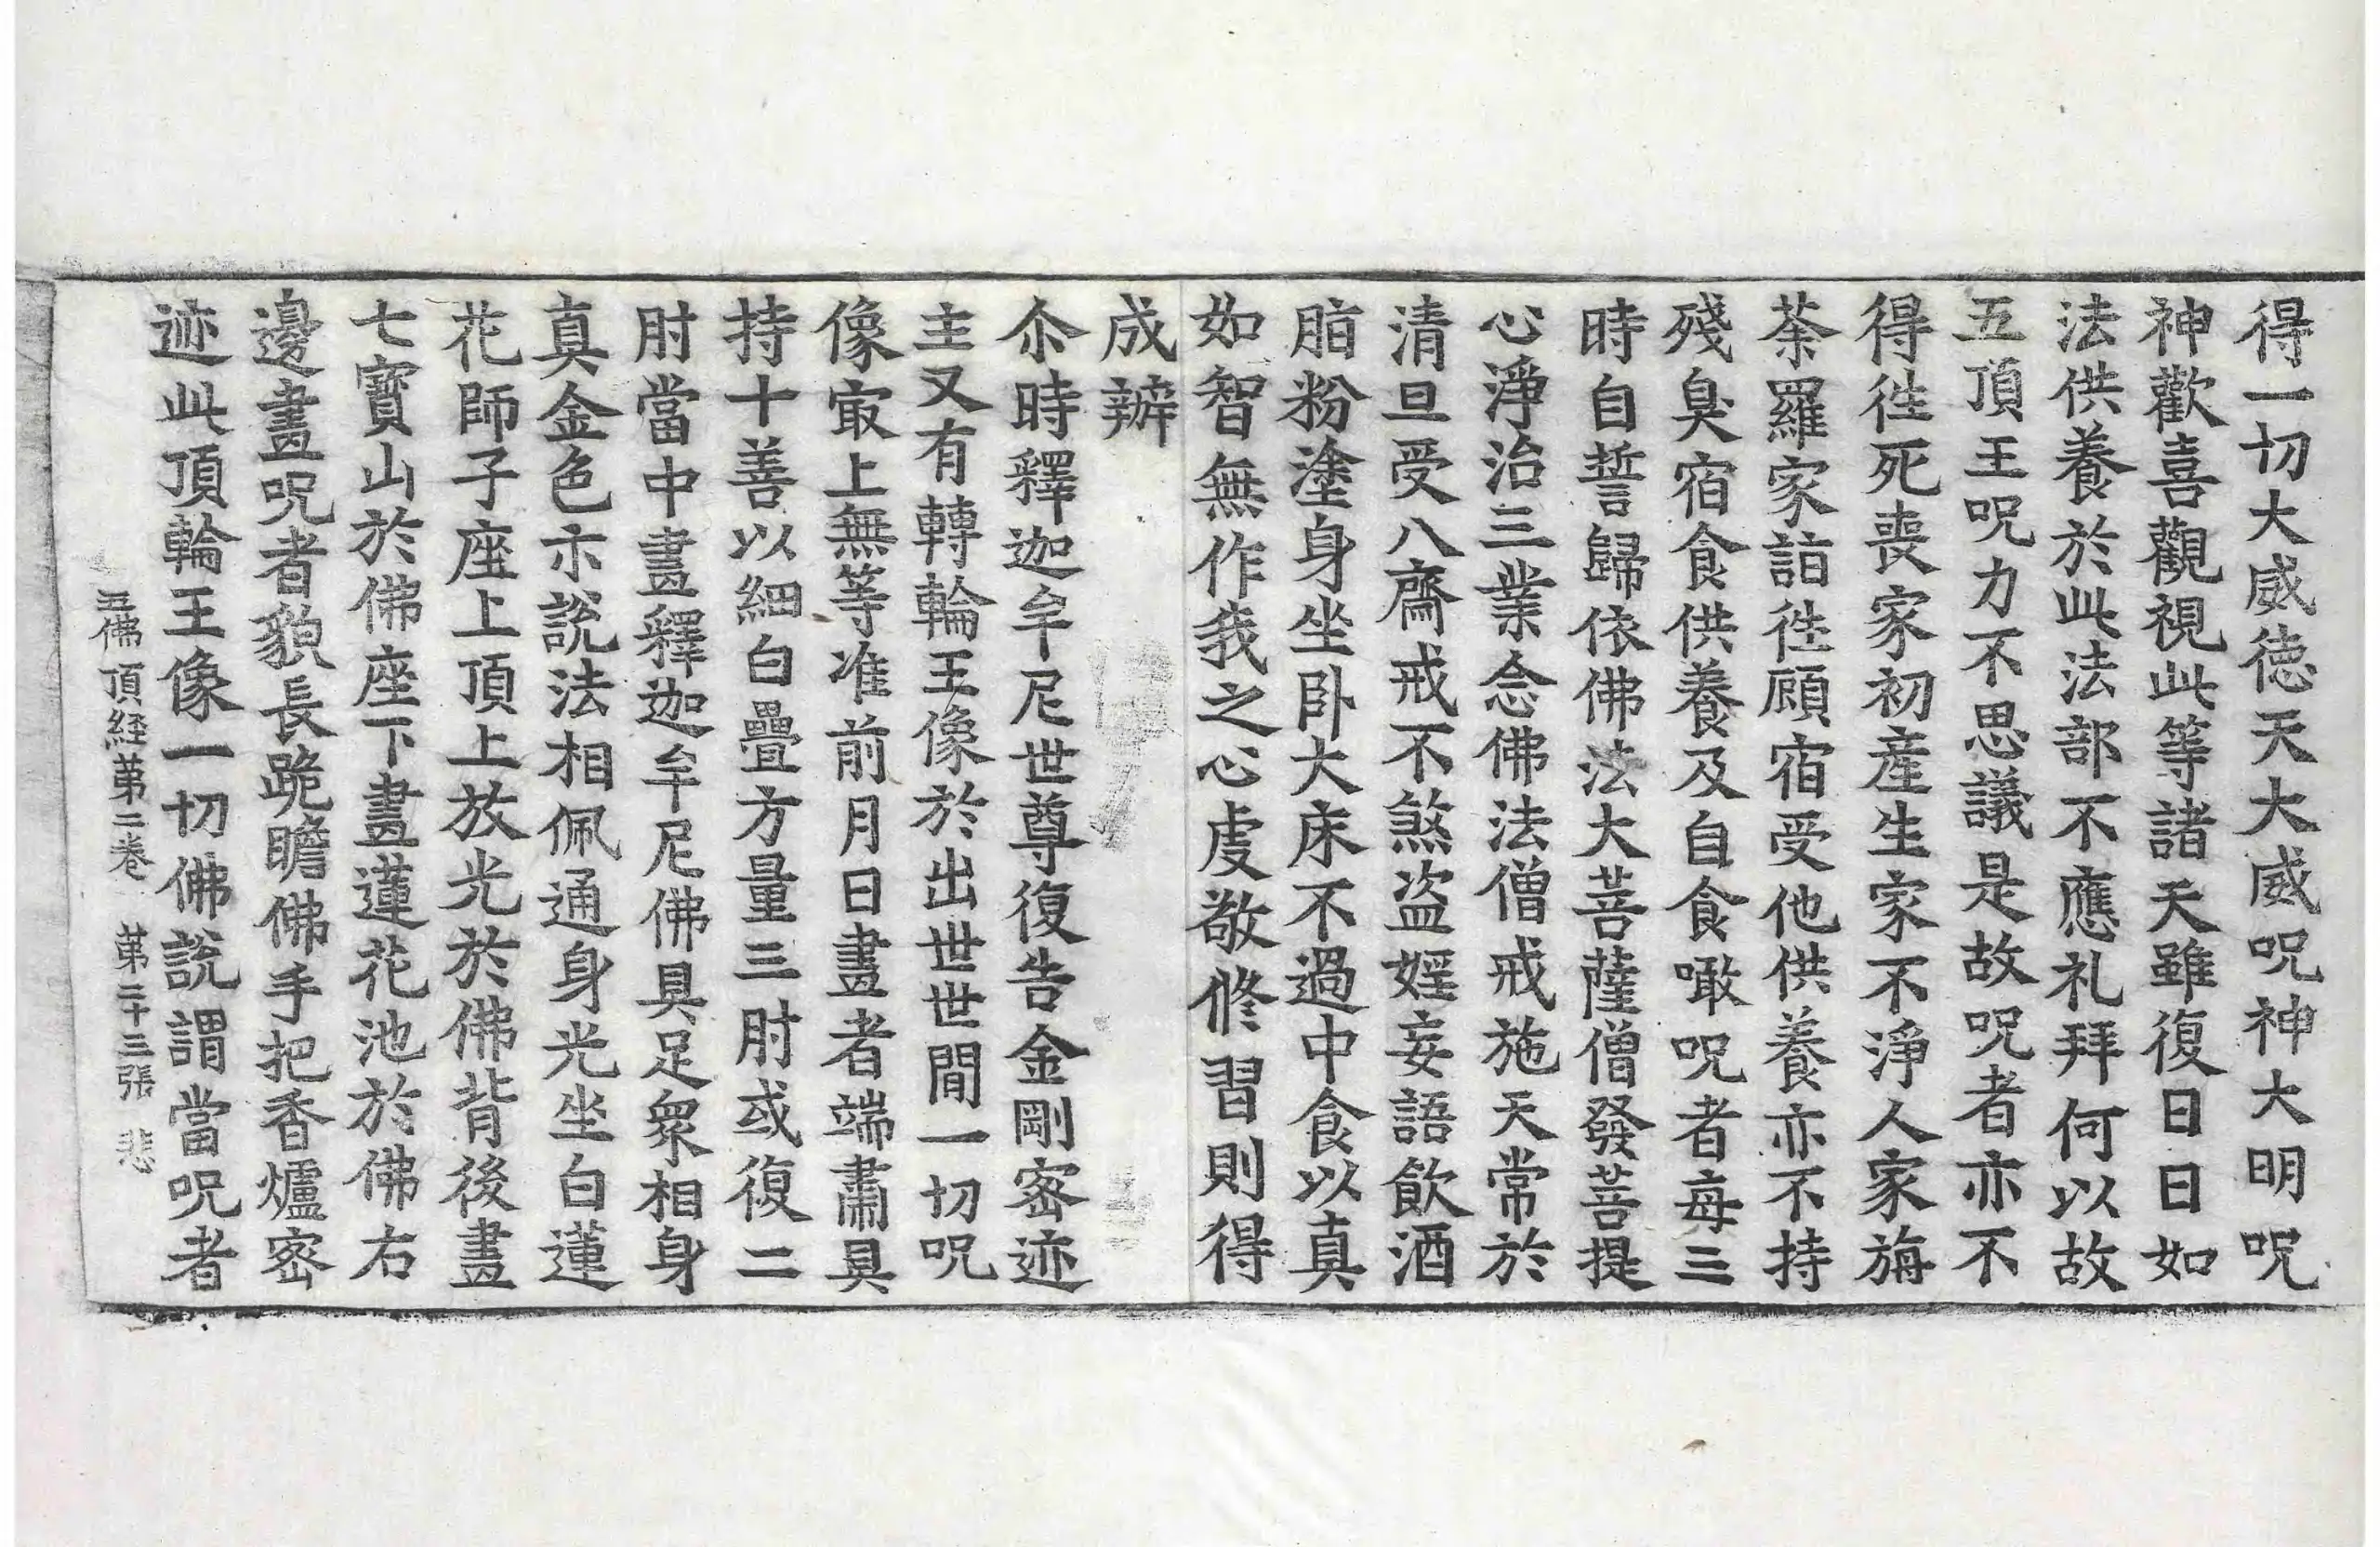 得一切大威徳天大威呪神大明呪
神歡喜觀視此等諸天雖復日日如
法供養於此法部不應礼拜何以故
五頂王呪力不思議是故呪者亦不
得往死喪家初產生家不淨人家旃
荼羅家詣往顧宿受他供養亦不持
殘臭宿食供養及自食噉呪者每三
時自誓歸依佛法大菩薩僧發菩提
心淨治三業念佛法僧戒施天常於
清旦受八齋戒不煞盜婬妄語飲酒
脂粉塗身坐卧大床不過中食以真
如智無作我之心虔敬修習則得
成辦
尒時釋迦牟尼世尊復告金剛密迹
主又有轉輪王像於出世世間一切呪
像㝡上無等准前月日畫者端肅具
持十善以細白疊方量三肘或復二
肘當中畫釋迦牟尼佛具足眾相身
真金色示說法相佩通身光坐白蓮
花師子座上頂上放光於佛背後畫
七寶山於佛座下畫蓮花池於佛右
邊畫呪者貌長跪瞻佛手把香爐密
迹此頂輪王像一切佛說謂當呪者
五佛頂経苐二卷 苐二十三張 悲